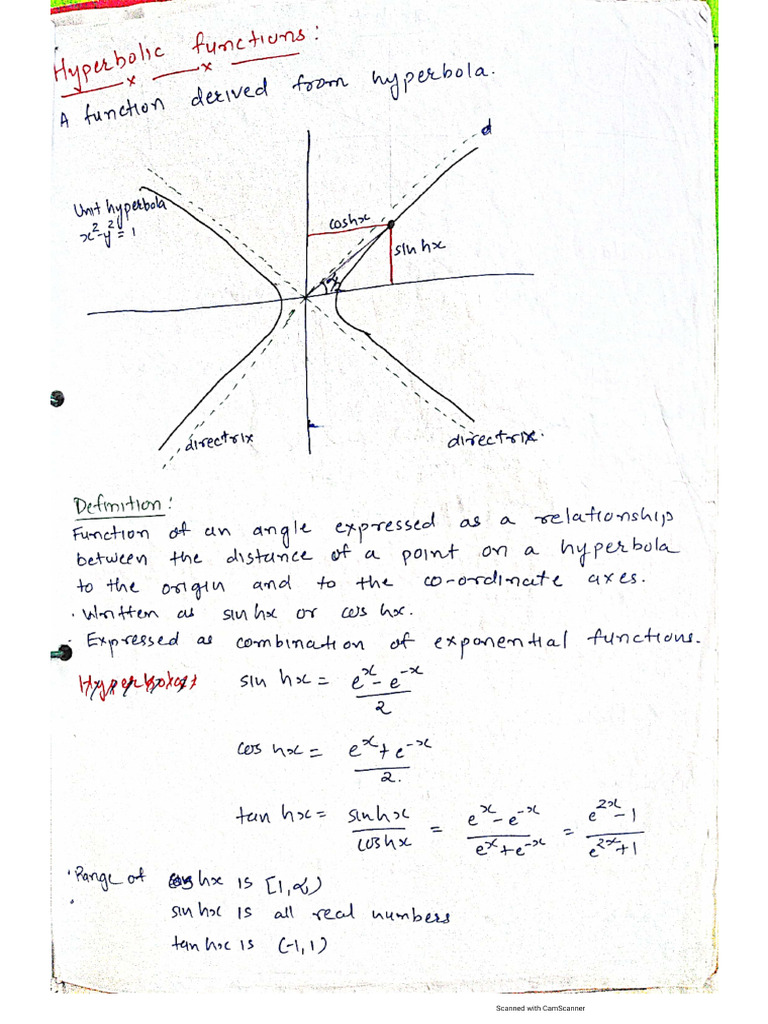 Hyperbolic functions:
A function derived from hyperbola.
d
Unit hyperbola
x² - y² = 1
coshx
sin hx
directrix
directrix.
Definition:
Function of an angle expressed as a relationship
between the distance of a point on a hyperbola
to the origin and to the co-ordinate axes.
· Written as sin hx or cos hx.
· Expressed as combination of exponential functions.
sin hx = (e^x - e^-x)/2
cos hx = (e^x + e^-x)/2.
tan hx = sinhx/coshx = (e^x - e^-x)/(e^x + e^-x) = (e^2x - 1)/(e^2x + 1)
· Range of cos hx is [1, ∞)
sin hx is all real numbers
tan hx is (-1, 1)
Scanned with CamScanner